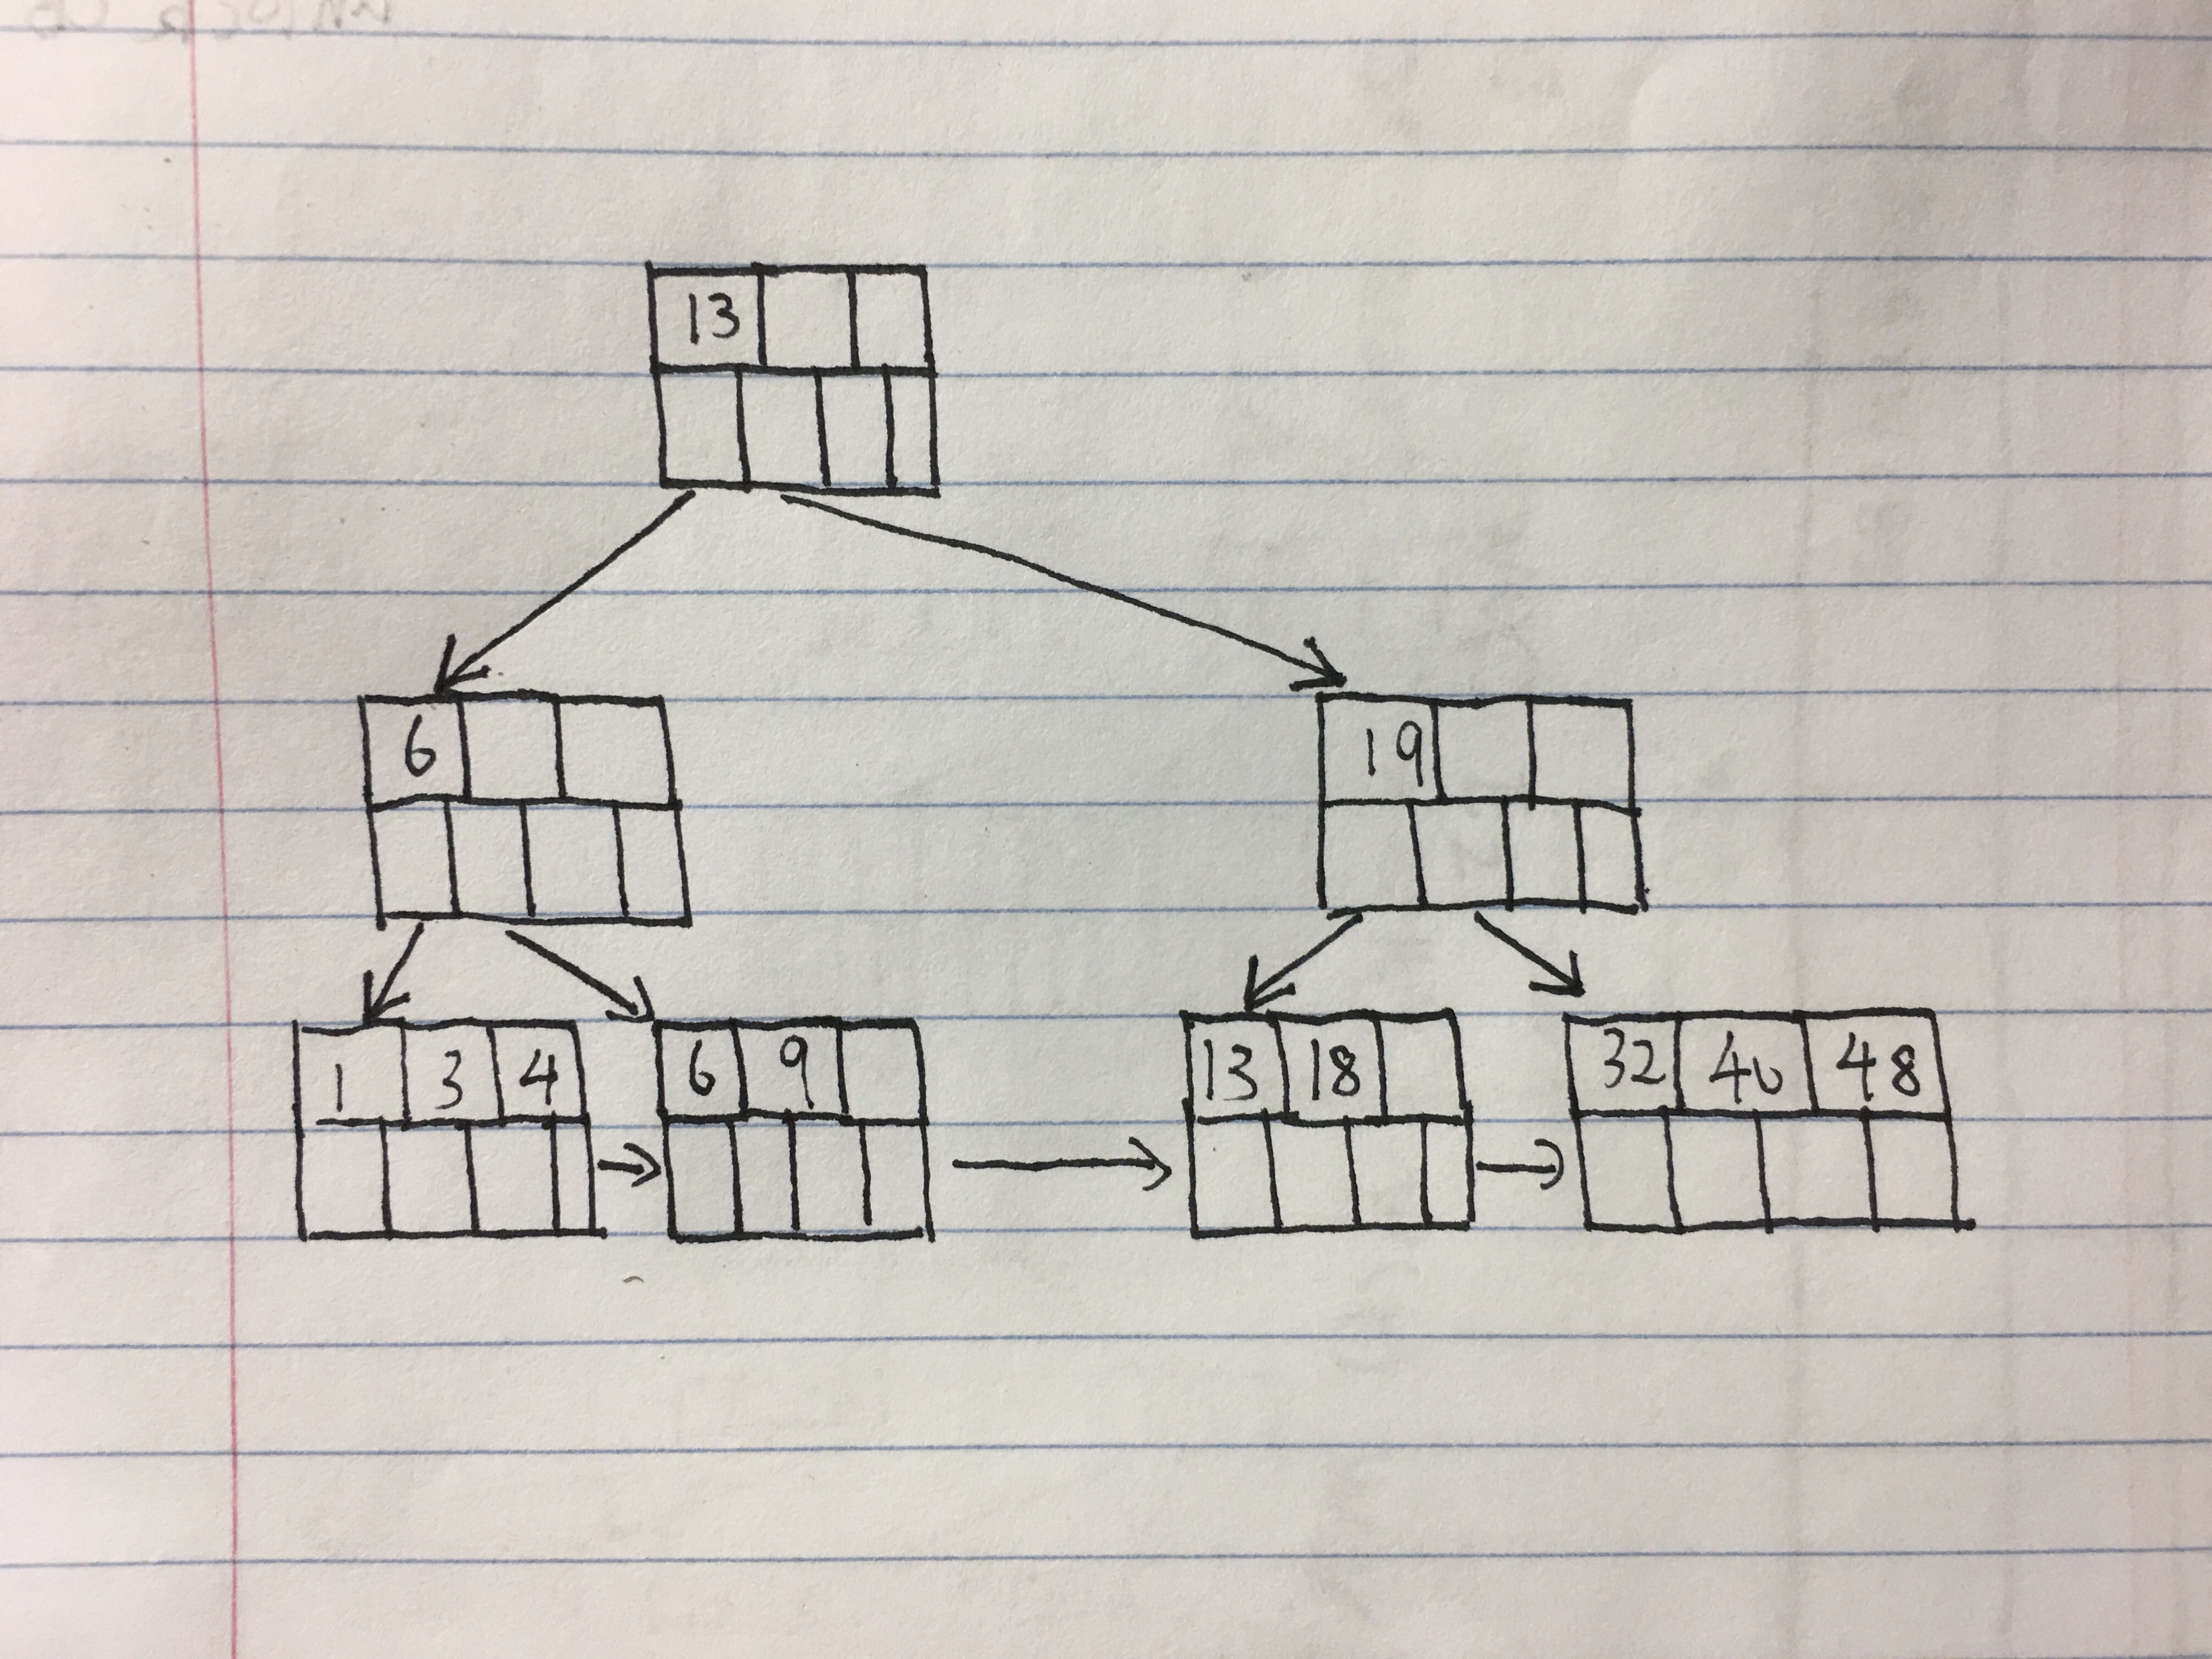 13
6 19
1 3 4 6 9 13 18 32 40 48